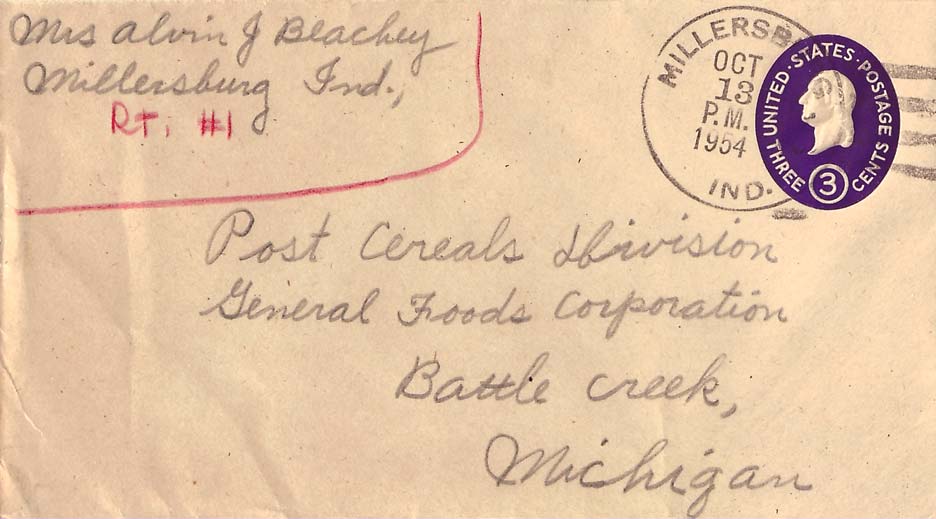 Mrs Alvin J Beachey
Millersburg Ind.,
RT. #1
MILLERSBU
OCT
13
P.M.
1954
IND.
UNITED·STATES·POSTAGE
THREE 3 CENTS
Post Cereals Division
General Foods Corporation
Battle Creek,
Michigan